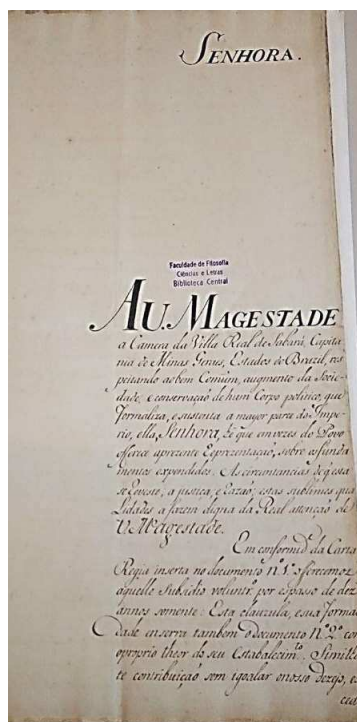 SENHORA.
Faculdade de Filosofia
Ciências e Letras
Biblioteca Central
AU. MAGESTADE
a Camera da Villa Real de Sabará, Capita
nia de Minas Geraes, Estados do Brazil, res
peitando ao bem Comum, augmento da Socie
dade, e conservação de hum Corpo politico, que
formaliza, e sustenta a mayor parte do Impe
rio, ella, Senhora, he que em vozes do Povo
offerece a prezente Reprezentação, sobre os funda
mentos expendidos. As circunstancias de q̃ esta
se reveste, a justiça, e razaõ; estas sublimes qua
lidades a fazem digna da Real attenção de
V. Magestade.
Em conformid.ͤ da Carta
Regia inserta no documento N.º 1.º offerecemos
aquelle Subsidio volunt.º por espaso de dez
annos somente: Esta clauzula, e sua forma
dade enserra tambem o documento N.º 2.º com
o proprio theor do seu Estabalecim.ᵗᵒ
te contribuição sem igoalar o nosso dezejo, e